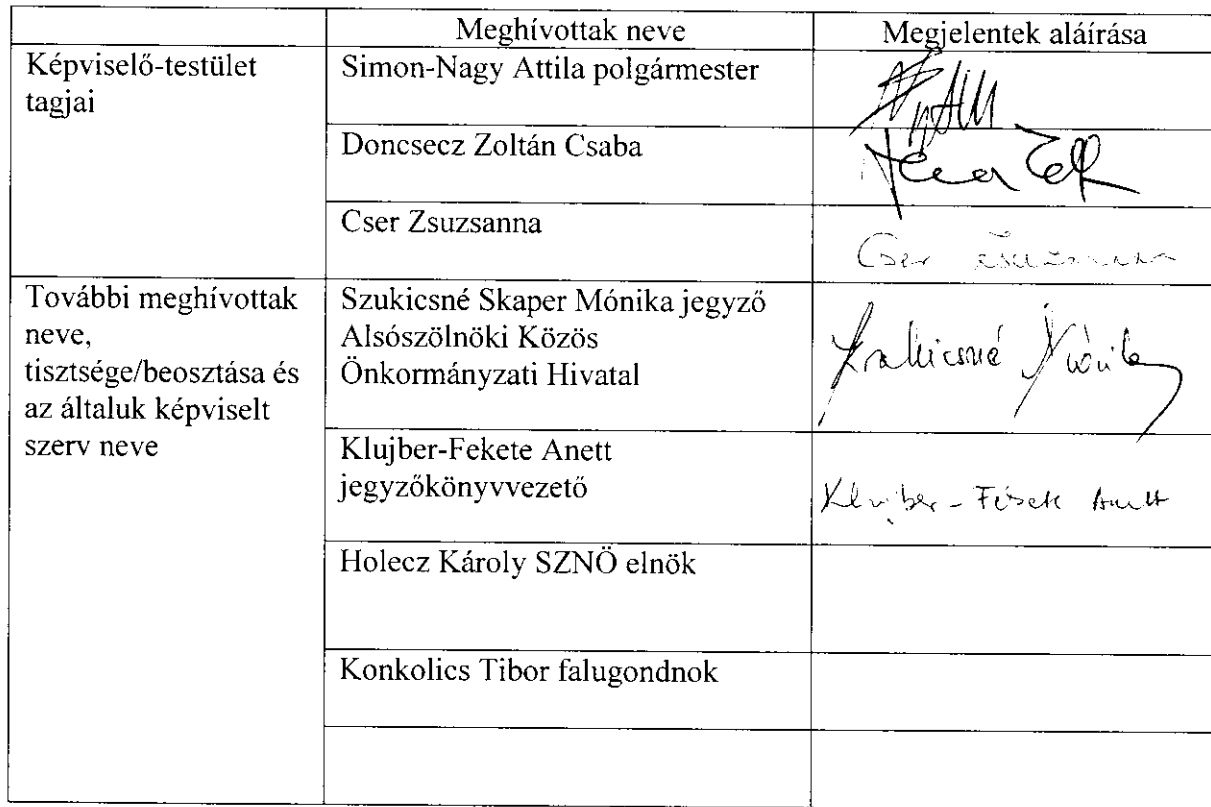 Meghívottak neve
Megjelentek aláírása
Képviselő-testület
tagjai
Simon-Nagy Attila polgármester
Doncsecz Zoltán Csaba
Cser Zsuzsanna
Cser Zsuzsanna
További meghívottak
neve,
tisztsége/beosztása és
az általuk képviselt
szerv neve
Szukicsné Skaper Mónika jegyző
Alsószölnöki Közös
Önkormányzati Hivatal
Szukicsné Mónika
Klujber-Fekete Anett
jegyzőkönyvvezető
Klujber-Fekete Anett
Holecz Károly SZNÖ elnök
Konkolics Tibor falugondnok